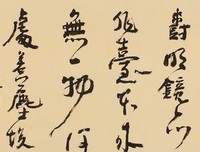 樹明鏡亦
非臺本來
無一物何
處惹塵埃